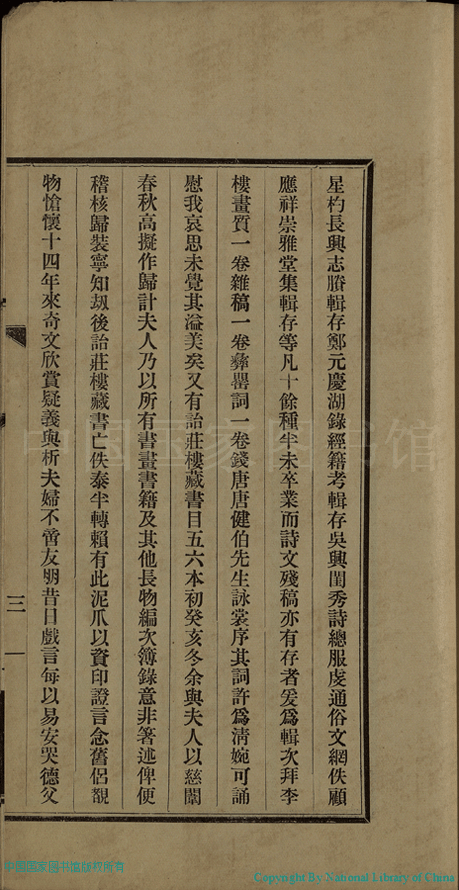 星杓長興志賸輯存鄭元慶湖錄經籍考輯存吳興閨秀詩總服虔通俗文網佚顧
應祥崇雅堂集輯存等凡十餘種半未卒業而詩文殘稿亦有存者爰爲輯次拜李
樓畫質一卷雜稿一卷彝器詞一卷錢唐唐健伯先生詠裳序其詞許爲淸婉可誦
慰我哀思未覺其溢美矣又有詒莊樓藏書目五六本初癸亥冬余與夫人以慈闈
春秋高擬作歸計夫人乃以所有書畫書籍及其他長物編次簿錄意非箸述俾便
稽核歸裝寧知刼後詒莊樓藏書亡佚泰半轉賴有此泥爪以資印證言念舊侶覩
物愴懷十四年來奇文欣賞疑義與析夫婦不啻友朋昔日戲言每以易安哭德父
三
中国国家图书馆
中国国家图书馆版权所有
Copyright By National Library of China